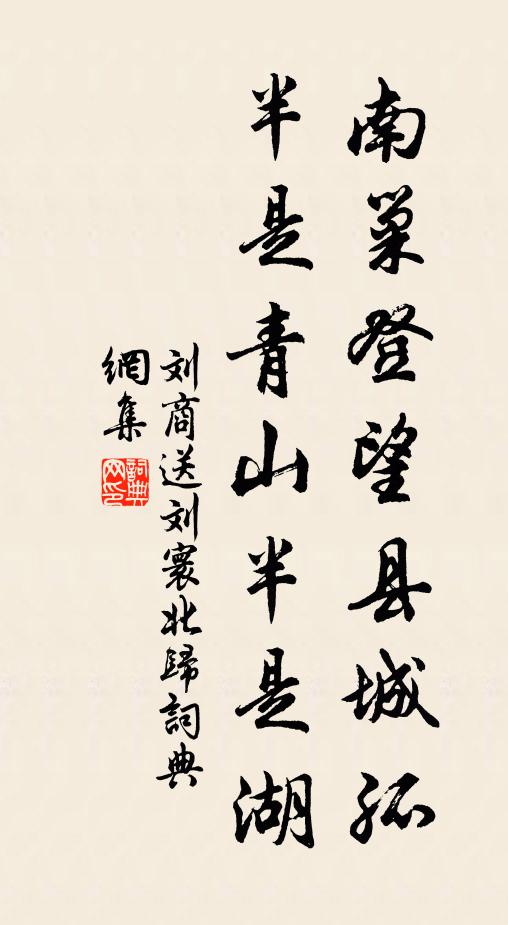 南巢登望县城孤
半是青山半是湖
刘商送刘寰北歸詞典
網集
詞典网印